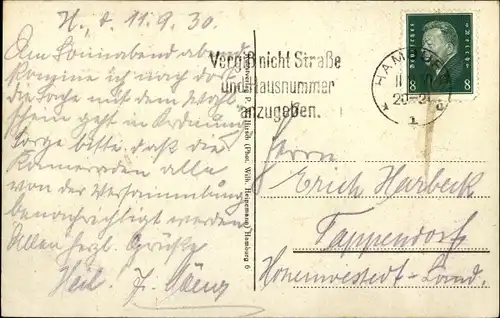 H., d. 11.9.30.
Am Sonnabend abend
komme ich nach dort
die Sache mit dem Wahl-
schein geht in Ordnung
sorge bitte, daß die
Kameraden alle
von der Versammlung
benachrichtigt werden
Allen herzl. Grüße
Heil
Vergiß nicht Straße
und Hausnummer
anzugeben.
HAMBURG
1
Deutsches Reich
8 8
Hirsch (Phot. Wilh. Heinemann) Hamburg 6
Herrn
Erich Harbeck
Tappendorf
Hohenwestedt-Land.